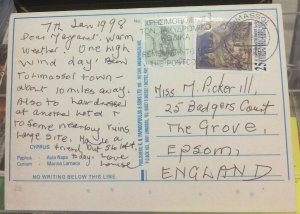 7th Jan 1998
Dear Margaret. Warm
weather. One high
wind day! Been
to Limassol town -
about 10 miles away.
Also to hairdresser
at another hotel &
to some nearby ruins,
large site. Made a
friend but she left
today. Love
CYPRUS
Paphos - Ayia Napa
Curium - Marina Larnaca
NO WRITING BELOW THIS LINE.
LIMASSOL
25
Miss M. Picker ill,
25 Badgers Court
The Grove,
Epsom,
ENGLAND